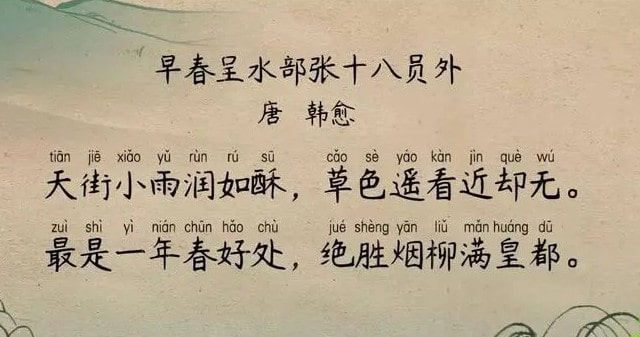 早春呈水部张十八员外
唐 韩愈
tiān jiē xiǎo yǔ rùn rú sū cǎo sè yáo kàn jìn què wú
天街小雨润如酥，草色遥看近却无。
zuì shì yì nián chūn hǎo chù jué shèng yān liǔ mǎn huáng dū
最是一年春好处，绝胜烟柳满皇都。